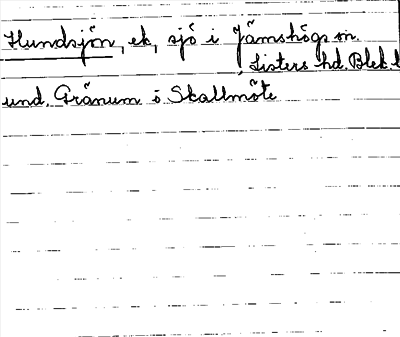 Hundsjön, ek, sjö i Jämshögs sn.
Listers hd. Blek. l
und. Gränum ö Skallmöte